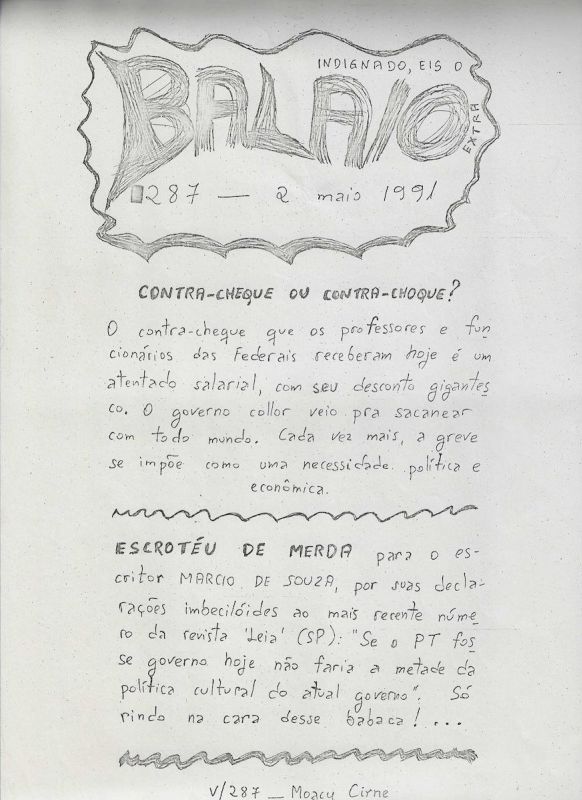 INDIGNADO, EIS O
BALAIO
EXTRA
287 — 2 maio 1991
CONTRA-CHEQUE OU CONTRA-CHOQUE?
O contra-cheque que os professores e fun
cionários das Federais receberam hoje é um
atentado salarial, com seu desconto gigantes
co. O governo collor veio pra sacanear
com todo mundo. Cada vez mais, a greve
se impõe como uma necessidade política e
econômica.
ESCROTÉU DE MERDA para o es-
critor MARCIO DE SOUZA, por suas decla-
rações imbecilóides ao mais recente núme
ro da revista 'Leia' (SP): "Se o PT fos
se governo hoje não faria a metade da
política cultural do atual governo". Só
rindo na cara desse babaca!...
V/287 — Moacy Cirne